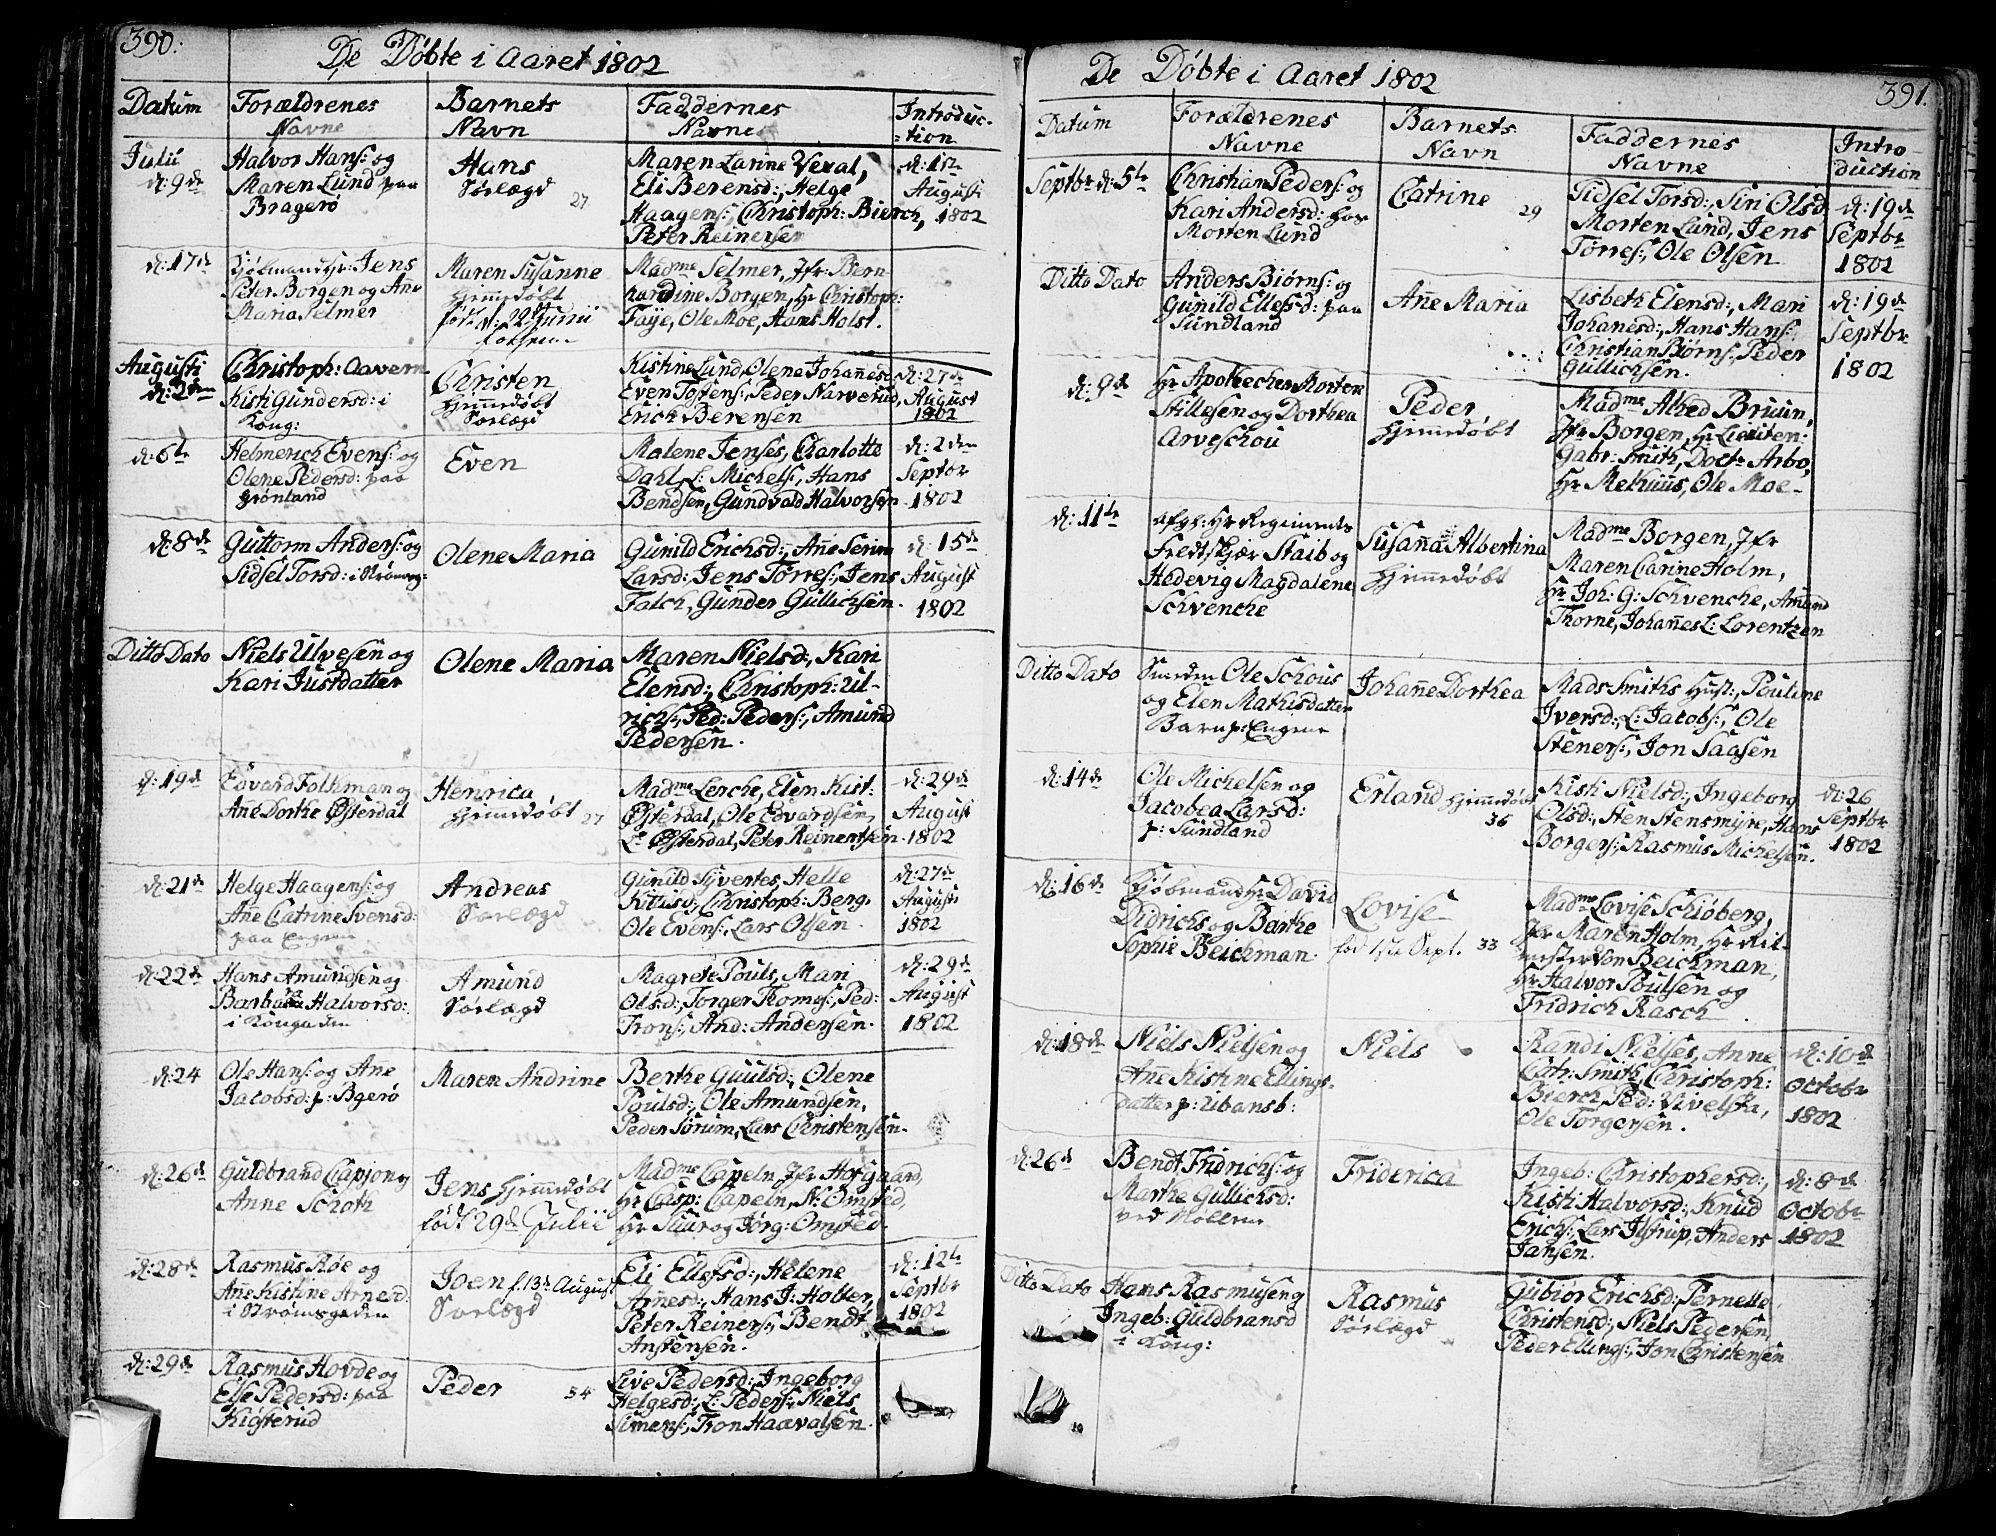 390.
De Døbte i Aaret 1802
Datum
Forældrenes
Navne
Barnets
Navn
Faddernes
Navne
Introduc-
=tion
Julii
d: 9de
Halvor Hans: og
Maren Lund paa
Bragerø
Hans
Sørlægd 27
Maren Larine Veral,
Eli Berensd:, Helge
Haagens:, Christoph: Bierch,
Peter Reinersen
d: 1ste
Augusti
1802
d: 17de
Kjøbmand Hr: Jens
Peter Borgen og Ane
Maria Selmer
Maren Susanne
Hjemmedøbt
Madme Selmer, Jfr: Bern-
hardine Borgen, Hr Christoph:
Faye, Ole Moe, Hans Holst.
Augusti
d: 2den
Christoph: Aavern
Kisti Gundersd: i
Kong:
Christen
Hjemmedøbt
Sørlægd
Kistine Lund, Olene Johanesd:
Even Tostens:, Peder Narverud,
Erich Berensen
d: 27de
August
1802
d: 6te
Helmerich Evens: og
Olene Pedersd: paa
Grønland
Even
Malene Jenses, Charlotte
Dahl, L: Michels:, Hans
Bendsen, Gundvald Halvorsen
d: 2den
Septbr
1802
d: 8de
Guttorm Anders: og
Sidsel Torsd: i Strømsg:
Olene Maria
Gunild Erichsd:, Ane Serine
Larsd:, Jens Torres:, Jens
Falch, Gunder Gullichsen.
d: 15de
August
1802
Ditto Dato
Niels Ulvesen og
Kari Justdatter
Olene Maria
Maren Nielsd:, Kari
Elensd:, Christoph: Ul-
richs:, Ped: Peders:, Amund
Pedersen.
d: 19de
Edvard Folkman og
Ane Dorthe Østerdal
Henrica,
Hjemmedøbt 27
Madme Lerche, Elen Kist:
Østerdal, Ole Edvardsen,
L: Østerdal, Peter Reinertsen
d: 29de
August
1802
d: 21de
Helge Haagens: og
Ane Catrine Svensd:
paa Engene
Andreas
Sørlægd
Gunild Syvertes, Helle
Kittilsd:, Christoph: Berg,
Ole Evens:, Lars Olsen.
d: 27de
Augusti
1802
d: 22de
Hans Amundsen og
Barbara Halvorsd:
i Kongaden
Amund
Sørlægd
Magrete Pouls, Mari
Olsd:, Torger Thomes:, Ped:
Trons:, And: Andersen.
d: 29de
August
1802
d: 24
Ole Hans: og Ane
Jacobsd: p: Bgerø
Maren Andrine
Berthe Guulsd:, Olene
Poulsd:, Ole Amundsen,
Peder Sørum, Lars Christensen.
d: 26de
Guldbrand Capjon og
Anne Schoth
Jens Hjemmedøbt
født 29de Julii
Madme Capeln, Jfr Hofgaard,
Hr Casp: Capeln, N: Omsted,
Hr Tuur og Jørg: Omsted.
d: 28de
Rasmus Røe og
Ane Kistine Arnesd:
i Strømsgaden
Joen f. 13de August
Sørlægd
Eli Ellefsd:, Helene
Arnesd:, Hans J: Holter,
Peter Reiners:, Bendt
Anstensen.
d: 12te
Septbr
1802
d: 29de
Rasmus Hovde og
Else Pedersd: paa
Kiøsterud
Peder 34
Live Pedersd:, Ingeborg
Helgesd:, L: Peders:, Niels
Simens:, Tron Haavalsen.
391.
De Døbte i Aaret 1802
Datum
Forældrenes
Navne
Barnets
Navn
Faddernes
Navne
Intro-
duction
Septbr d: 5te
Christian Peders: og
Kari Andersd: hos
Morten Lund
Catrine 29
Sidsel Torsd:, Siri Olsd:
Morten Lund, Jens
Torres:, Ole Olsen
d: 19de
Septbr
1802
Ditto Dato
Anders Biørns: og
Gunild Ellefsd: paa
Sundland
Ane Maria
Lisbeth Elensd:, Mari
Johanesd:, Hans Hans:
Christian Biørns:, Peder
Gullichsen.
d: 19de
Septbr
1802
d: 9de
Hr Apothecher Morten
Stillesen og Dorthea
Arveschou
Peder,
Hjemmedøbt
Madme Ahed Bruun,
Jfr Borgen, Hr Lieuten:
Gabr: Smith, Doctr Arbo,
Hr Methuus, Ole Moe-
d: 11te
afgl: Hr Regiments
Feldtskjær Staib og
Hedevig Magdalene
Schvencke
Susanna Albertina
Hjemmedøbt
Madme Borgen, Jfr
Maren Carine Holm,
Hr Joh: G: Schvencke, Amund
Thorne, Johannes L: Lorentzen
Ditto Dato
Smeden Ole Schous
og Elen Mathisdatter
Barn p: Engene
Johanne Dorthea
Mads Smiths Hust:, Pouline
Iversd:, L: Jacobs:, Ole
Steners:, Jon Saasen
d: 14de
Ole Michelsen og
Jacobea Larsd:
p: Sundland
Erland Hjemmedøbt
36
Kisti Nielsd:, Ingeborg
Olsd:, Sten Stensmyre, Hans
Borgers:, Rasmus Michelsen.
d: 26
Septbr
1802
d: 16de
Kjøbmand Hr David
Didrichs og Barthe
Sophie Beichman
Lovise
fød 1ste Sept. 33
Madme Lovise Schiøberg,
Jfr Maren Holm, Hr Rit-
mester Von Beichman,
Hr Halvor Poulsen og
Fridrich Rasch
d: 18de
Niels Nielsen og
Ane Kistine Ellings-
datter p: Ubansb:
Niels
Randi Nielses, Anne
Catr: Smith, Christoph:
Bierch, Ped: Vivelsta,
Ole Torgersen.
d: 10de
Octobr
1802
d: 26de
Bendt Fridrichs: og
Marthe Gullichsd:
ved Møllene
Friderica
Ingeb: Christophersd:,
Kisti Halvorsd:, Knud
Erichs:, Lars Ilstrup, Anders
Jansen.
d: 8de
Octobr
1802
Ditto Dato
Hans Rasmusen og
Ingeb: Guldbransd
i Kong:
Rasmus
Sørlægd
Gubiør Erichsd:, Pernelle
Christensd:, Niels Pedersen,
Peder Ellings:, Jon Christensen